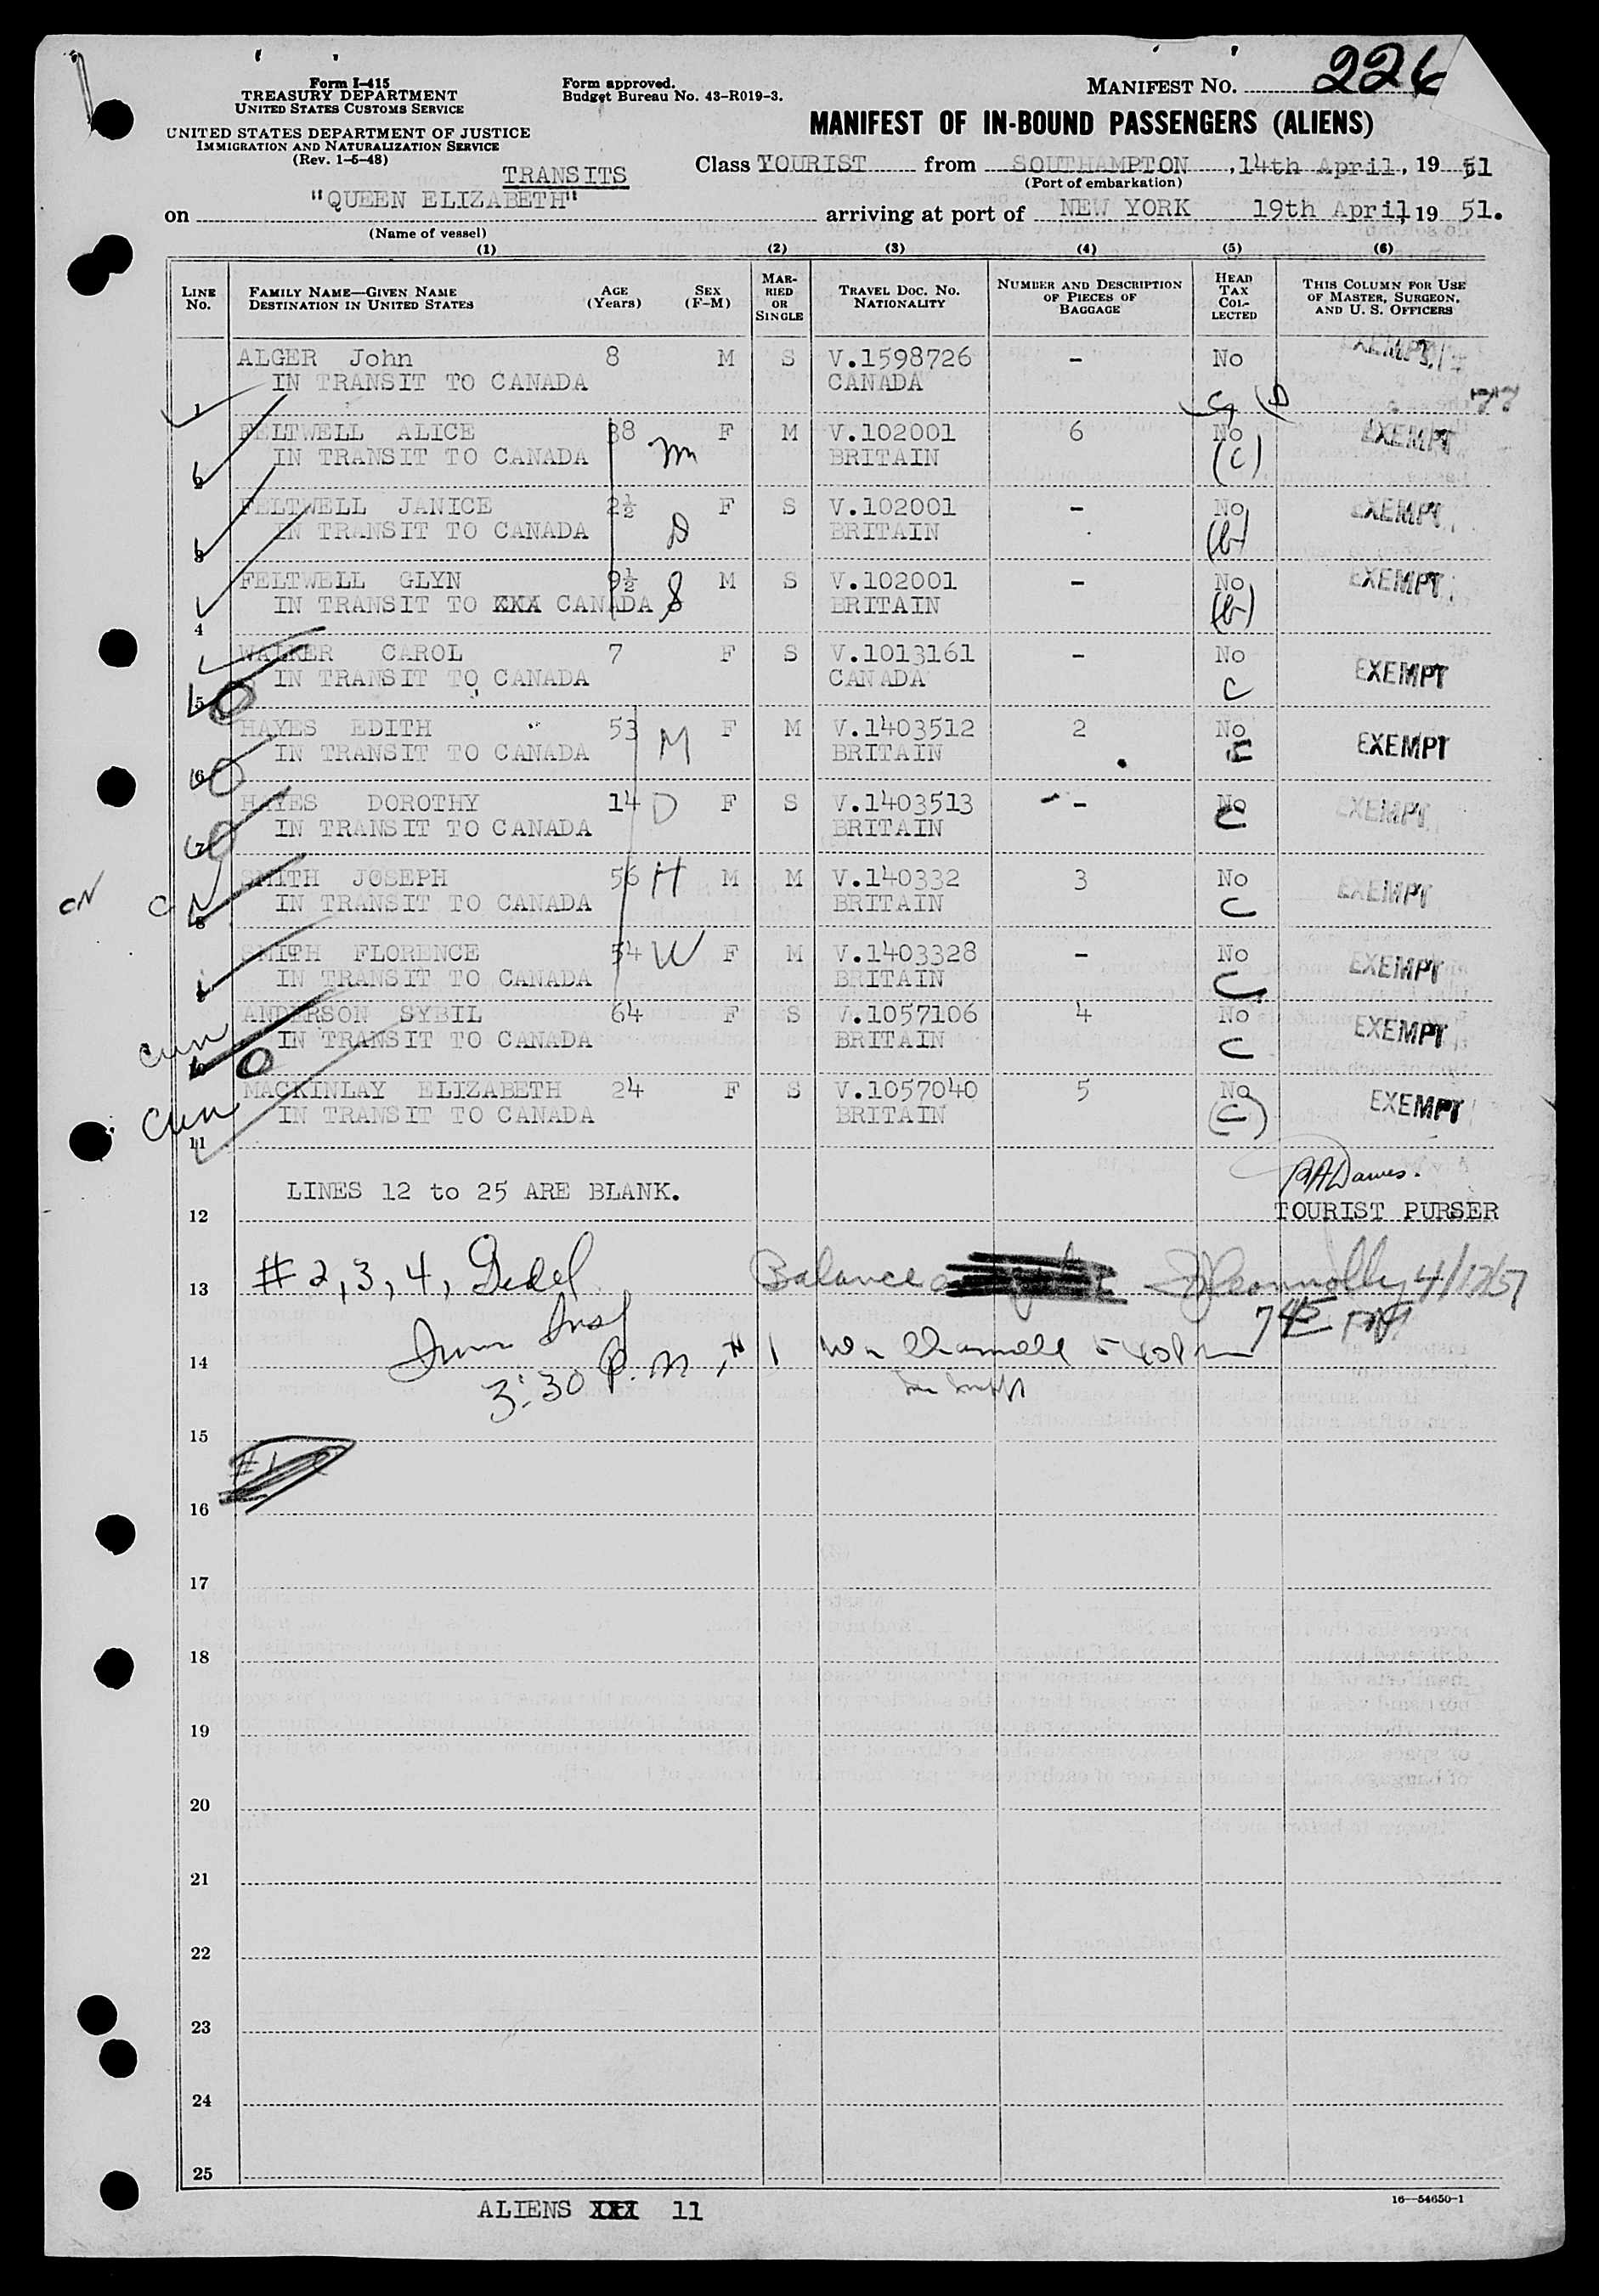 Form I-415
TREASURY DEPARTMENT
UNITED STATES CUSTOMS SERVICE
UNITED STATES DEPARTMENT OF JUSTICE
IMMIGRATION AND NATURALIZATION SERVICE
(Rev. 1-5-48)
Form approved.
Budget Bureau No. 43-R019-3.
MANIFEST NO. 226
MANIFEST OF IN-BOUND PASSENGERS (ALIENS)
TRANSITS
Class YOURIST from SOUTHAMPTON, 14th April, 19 51
(Port of embarkation)
on "QUEEN ELIZABETH" arriving at port of NEW YORK 19th April, 19 51.
(Name of vessel)
(1) (2) (3) (4) (5) (6)
LINE No. FAMILY NAME—GIVEN NAME DESTINATION IN UNITED STATES AGE (Years) SEX (F-M) MARRIED OR SINGLE TRAVEL DOC. NO. NATIONALITY NUMBER AND DESCRIPTION OF PIECES OF BAGGAGE HEAD TAX COLLECTED THIS COLUMN FOR USE OF MASTER, SURGEON, AND U. S. OFFICERS
ALGER John 8 M S V.1598726 – No EXEMPT
1 IN TRANSIT TO CANADA CANADA
77
FELTWELL ALICE 38 F M V.102001 6 No EXEMPT
2 IN TRANSIT TO CANADA m BRITAIN (c)
FELTWELL JANICE 2½ F S V.102001 – No EXEMPT
3 IN TRANSIT TO CANADA D BRITAIN (b)
FELTWELL GLYN 9½ M S V.102001 – No EXEMPT
4 IN TRANSIT TO XXX CANADA S BRITAIN (b)
WALKER CAROL 7 F S V.1013161 – No EXEMPT
5 IN TRANSIT TO CANADA CANADA C
HAYES EDITH 53 M F M V.1403512 2 No EXEMPT
6 IN TRANSIT TO CANADA BRITAIN C
HAYES DOROTHY 14 D F S V.1403513 – No EXEMPT
7 IN TRANSIT TO CANADA BRITAIN C
SMITH JOSEPH 56 H M M V.140332 3 No EXEMPT
8 IN TRANSIT TO CANADA BRITAIN C
SMITH FLORENCE 54 W F M V.1403328 – No EXEMPT
IN TRANSIT TO CANADA BRITAIN C
ANDERSON SYBIL 64 F S V.1057106 4 No EXEMPT
IN TRANSIT TO CANADA BRITAIN C
MACKINLAY ELIZABETH 24 F S V.1057040 5 No EXEMPT
11 IN TRANSIT TO CANADA BRITAIN (C)
LINES 12 to 25 ARE BLANK.
12 TOURIST PURSER
13 # 2, 3, 4, Balance
745 PM
14 3:30 P.M. # 1
15
# 1
16
17
18
19
20
21
22
23
24
25
ALIENS XXX 11
16—54650-1